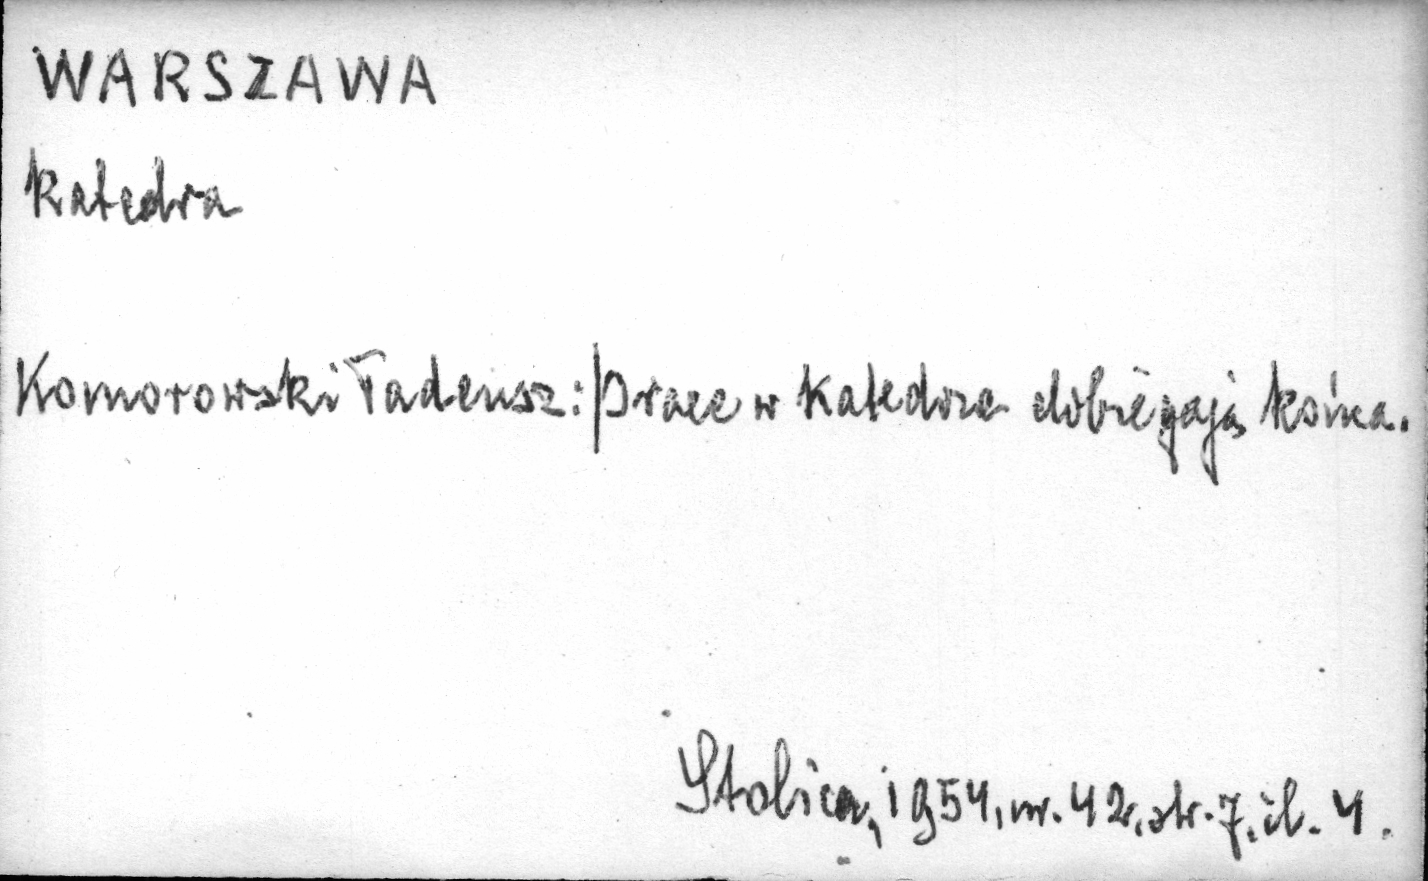 WARSZAWA
Katedra
Komorowski Tadeusz: Prace w Katedrze dobiegają końca.
Stolica, 1954, nr. 42, str. 7, il. 4.